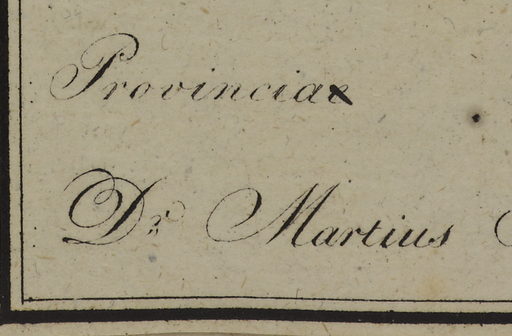 Provinciae
Dr. Martius